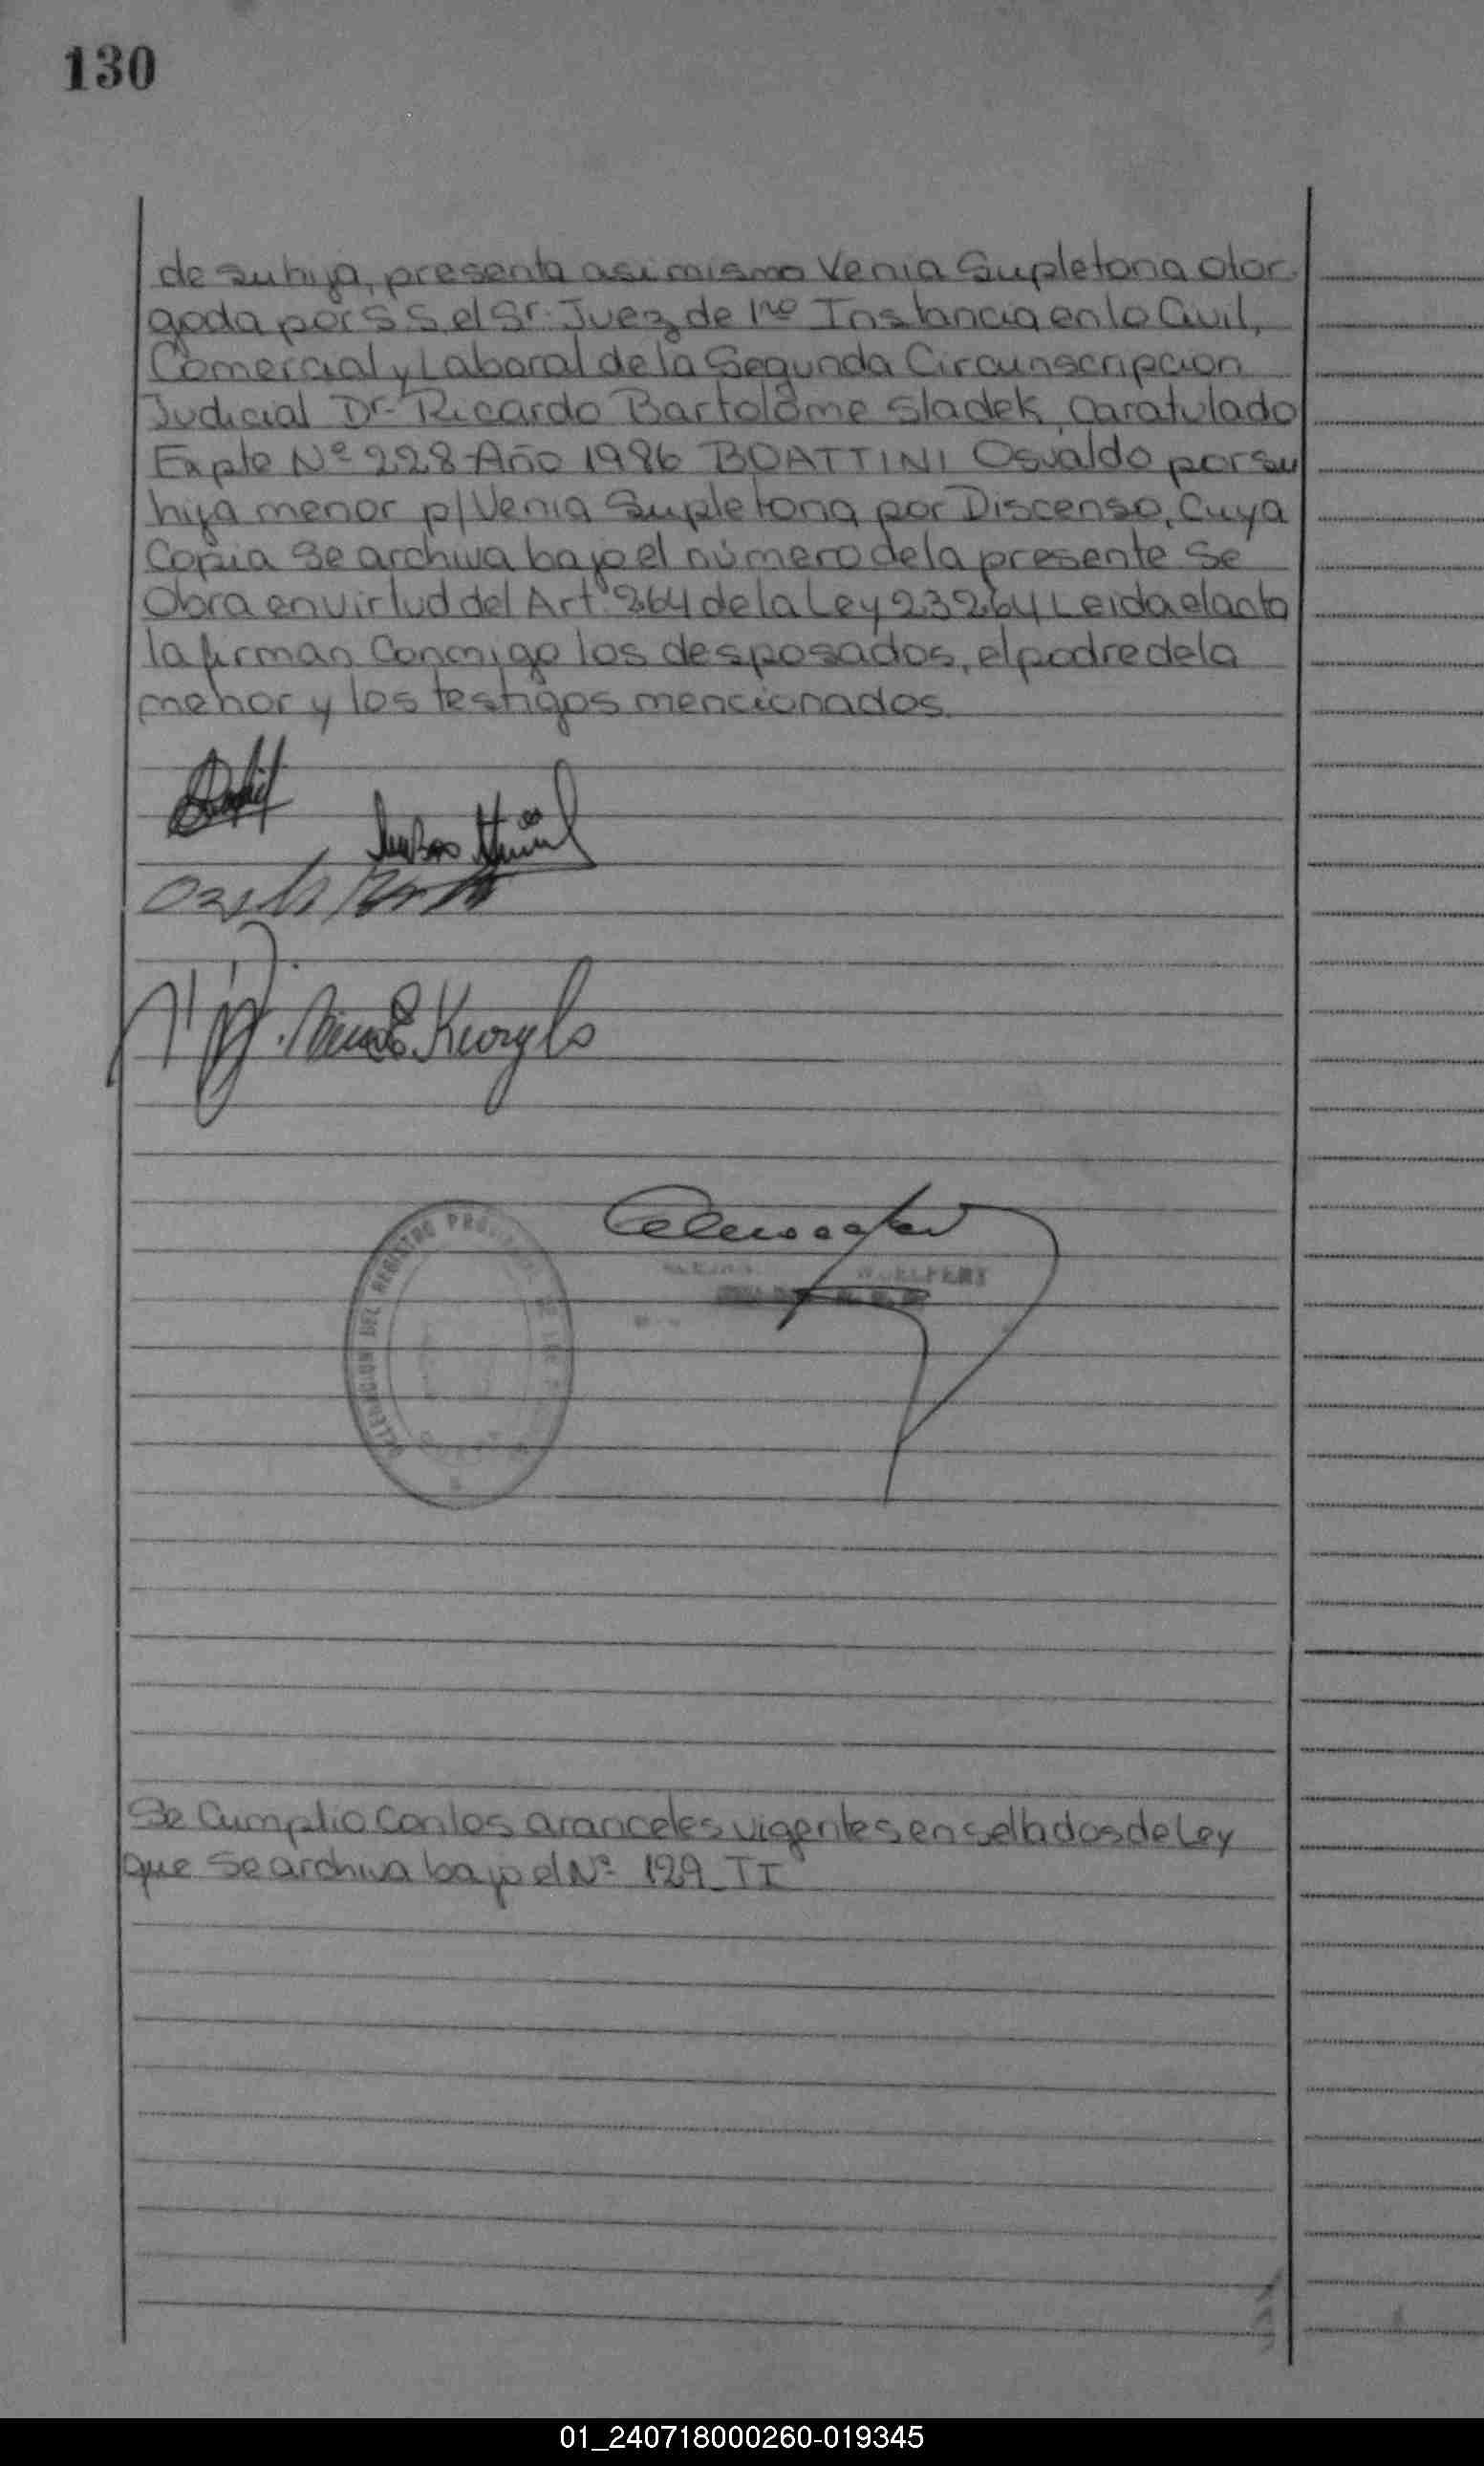 130
de su hija, presenta asi mismo Venia Supletoria otor
gada por S S, el Sr. Juez de 1ro Instancia en lo Civil,
Comercial y Laboral de la Segunda Circunscripcion
Judicial Dr. Ricardo Bartolome Sladek, Caratulado
Expte Nº 228 Año 1986 BOATTINI Osvaldo por su
hija menor p/ Venia Supletoria por Discenso, Cuya
Copia Se archiva bajo el número de la presente Se
Obra en virtud del Art. 264 de la Ley 23264 Leida el acta
la firman Conmigo los desposados, el padre de la
menor y los testigos mencionados.
Kurylo
DELEGACION DEL REGISTRO PROVINCIAL DE LAS
Se Cumplio Con los aranceles vigentes en sellados de Ley
que Se archiva bajo el Nº 129 TI
01_240718000260-019345